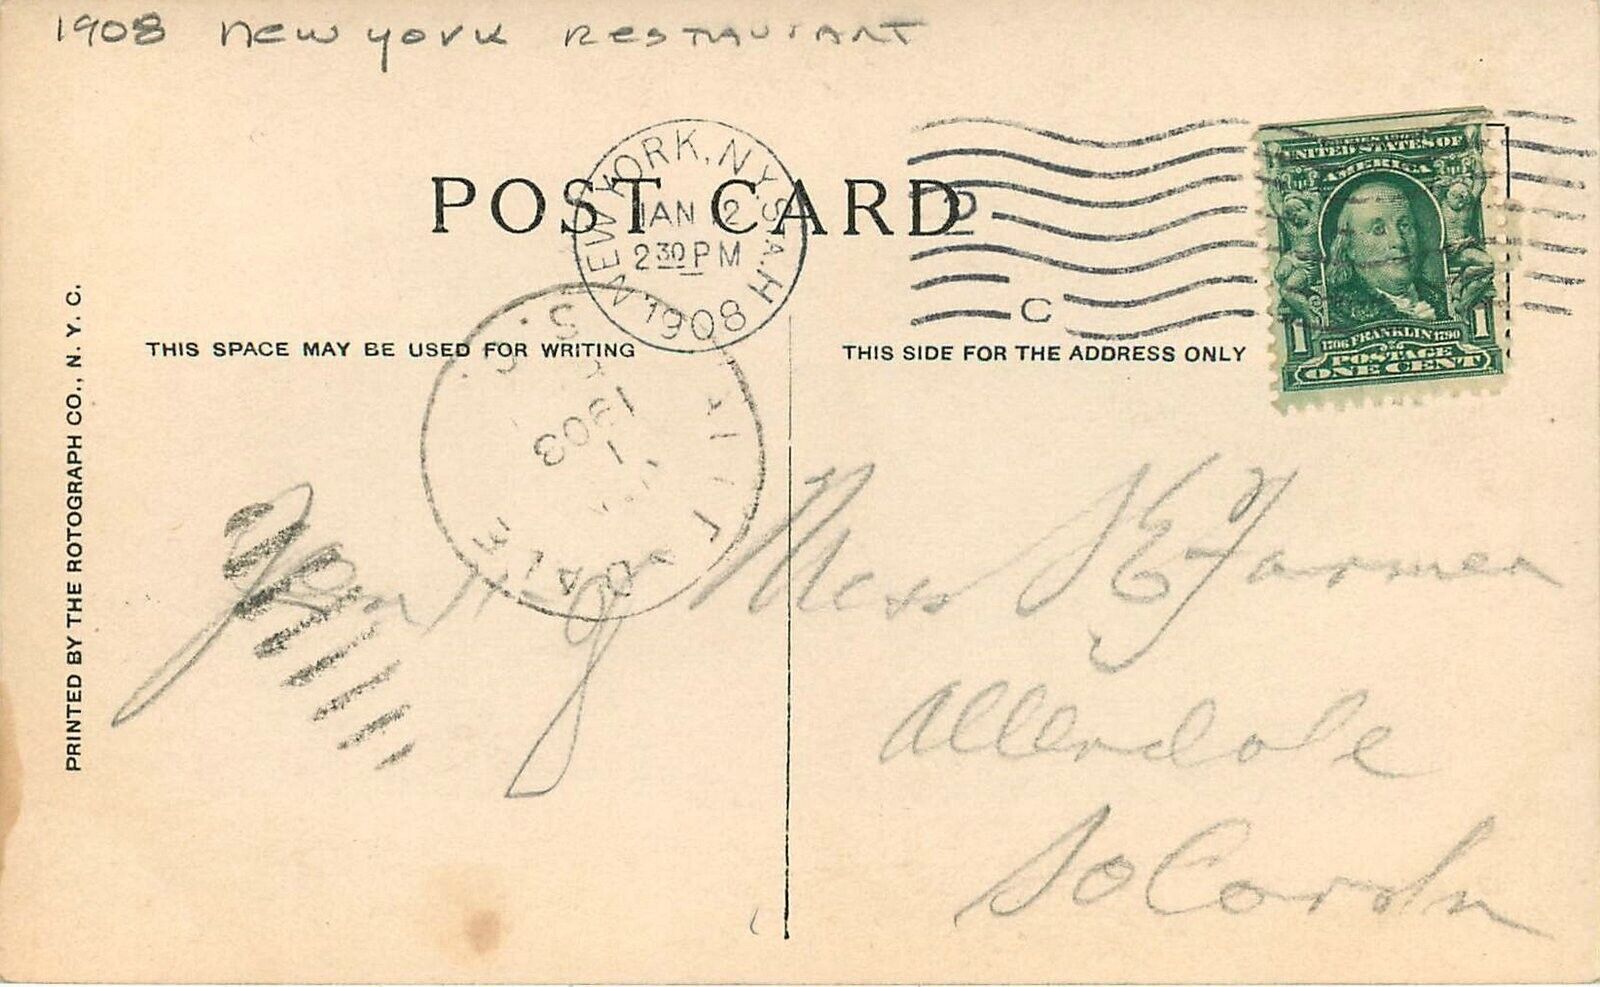 1908 new york Restaurant
POST CARD
NEW YORK, N.Y. STA. H
JAN 12
2 30 PM
1908
C
UNITED STATES OF
AMERICA
1706 FRANKLIN 1790
1 1
POSTAGE
ONE CENT
THIS SPACE MAY BE USED FOR WRITING
THIS SIDE FOR THE ADDRESS ONLY
PRINTED BY THE ROTOGRAPH CO., N. Y. C.
S. C.
1903
DALE
Miss S E Farmer
Allendale
So Caroln